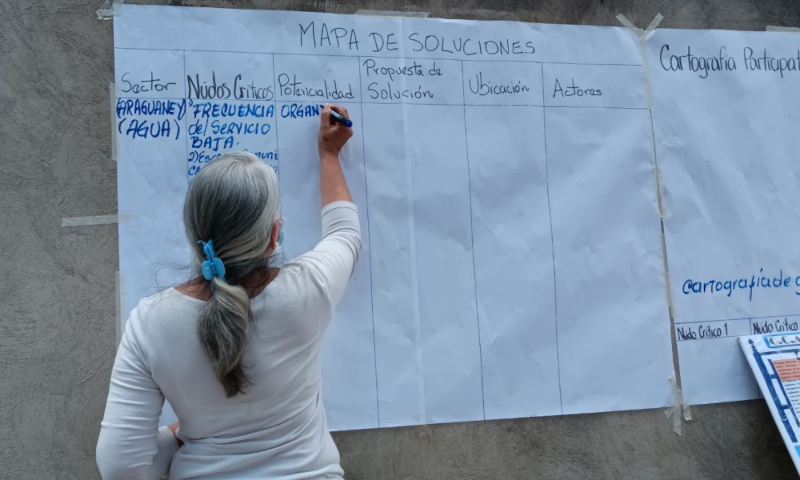 MAPA DE SOLUCIONES
Sector
Núdos Críticos
Potencialidad
Propuesta de
Solución
Ubicación
Actores
(ARAGUANEY)
(AGUA)
FRECUENCIA
del SERVICIO
BAJA.
ORGAN
Cartografía Participat
cartografía de g
Núdo Crítico 1
Núdo Crítico